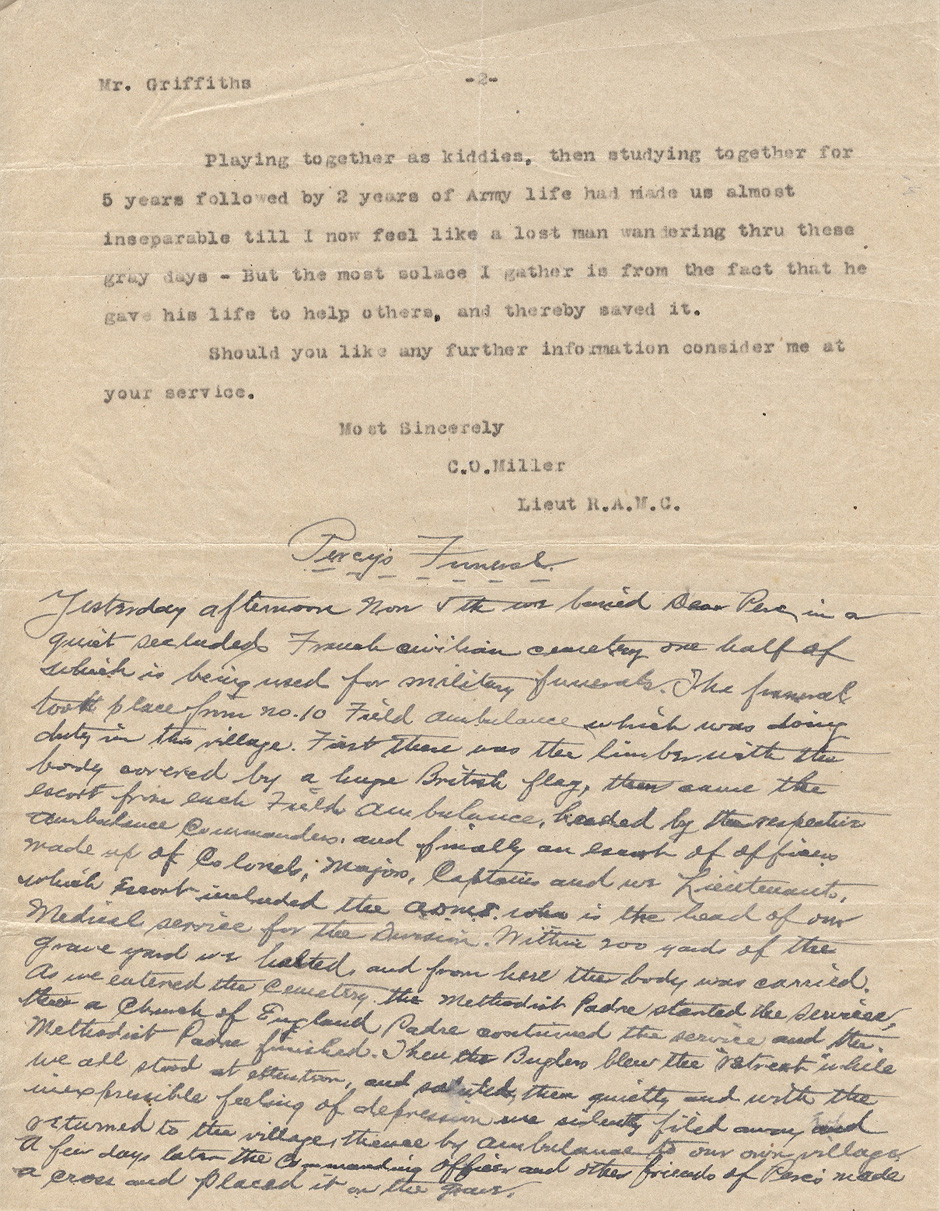 Mr. Griffiths -2-
Playing together as kiddies, then studying together for
5 years followed by 2 years of Army life had made us almost
inseparable till I now feel like a lost man wandering thru these
gray days - But the most solace I gather is from the fact that he
gave his life to help others, and thereby saved it.
Should you like any further information consider me at
your service.
Most Sincerely
C.O.Miller
Lieut R.A.M.C.
Percy's Funeral.
Yesterday afternoon Nov 5th we buried Dear Perc, in a
quiet secluded French civilian cemetry one half of
which is being used for military funerals. The funeral
took place from no. 10 Field ambulance which was doing
duty in this village. First there was the limber with the
body covered by a huge British flag, then came the
escort from each Field Ambulance, headed by the respective
Ambulance Commanders. and finally an escort of officers
made up of Colonels, Majors, Captains and we Lieutenants,
which Escort included the A.D.M.S. who is the head of our
Medical service for the Division. Within 200 yards of the
grave yard we halted, and from here the body was carried.
As we entered the Cemetry the Methodist Padre started the service,
then a Church of England Padre continued the service and the
Methodist Padre finished. Then the Buglers blew the "Retreat" while
we all stood at attention, and saluted, then quietly and with the
inexpressible feeling of depression we silently filed away and
returned to the village, thence by ambulance to our own village.
A few days later the Commanding Officer and other friends of Perc's made
a cross and placed it on the grave.